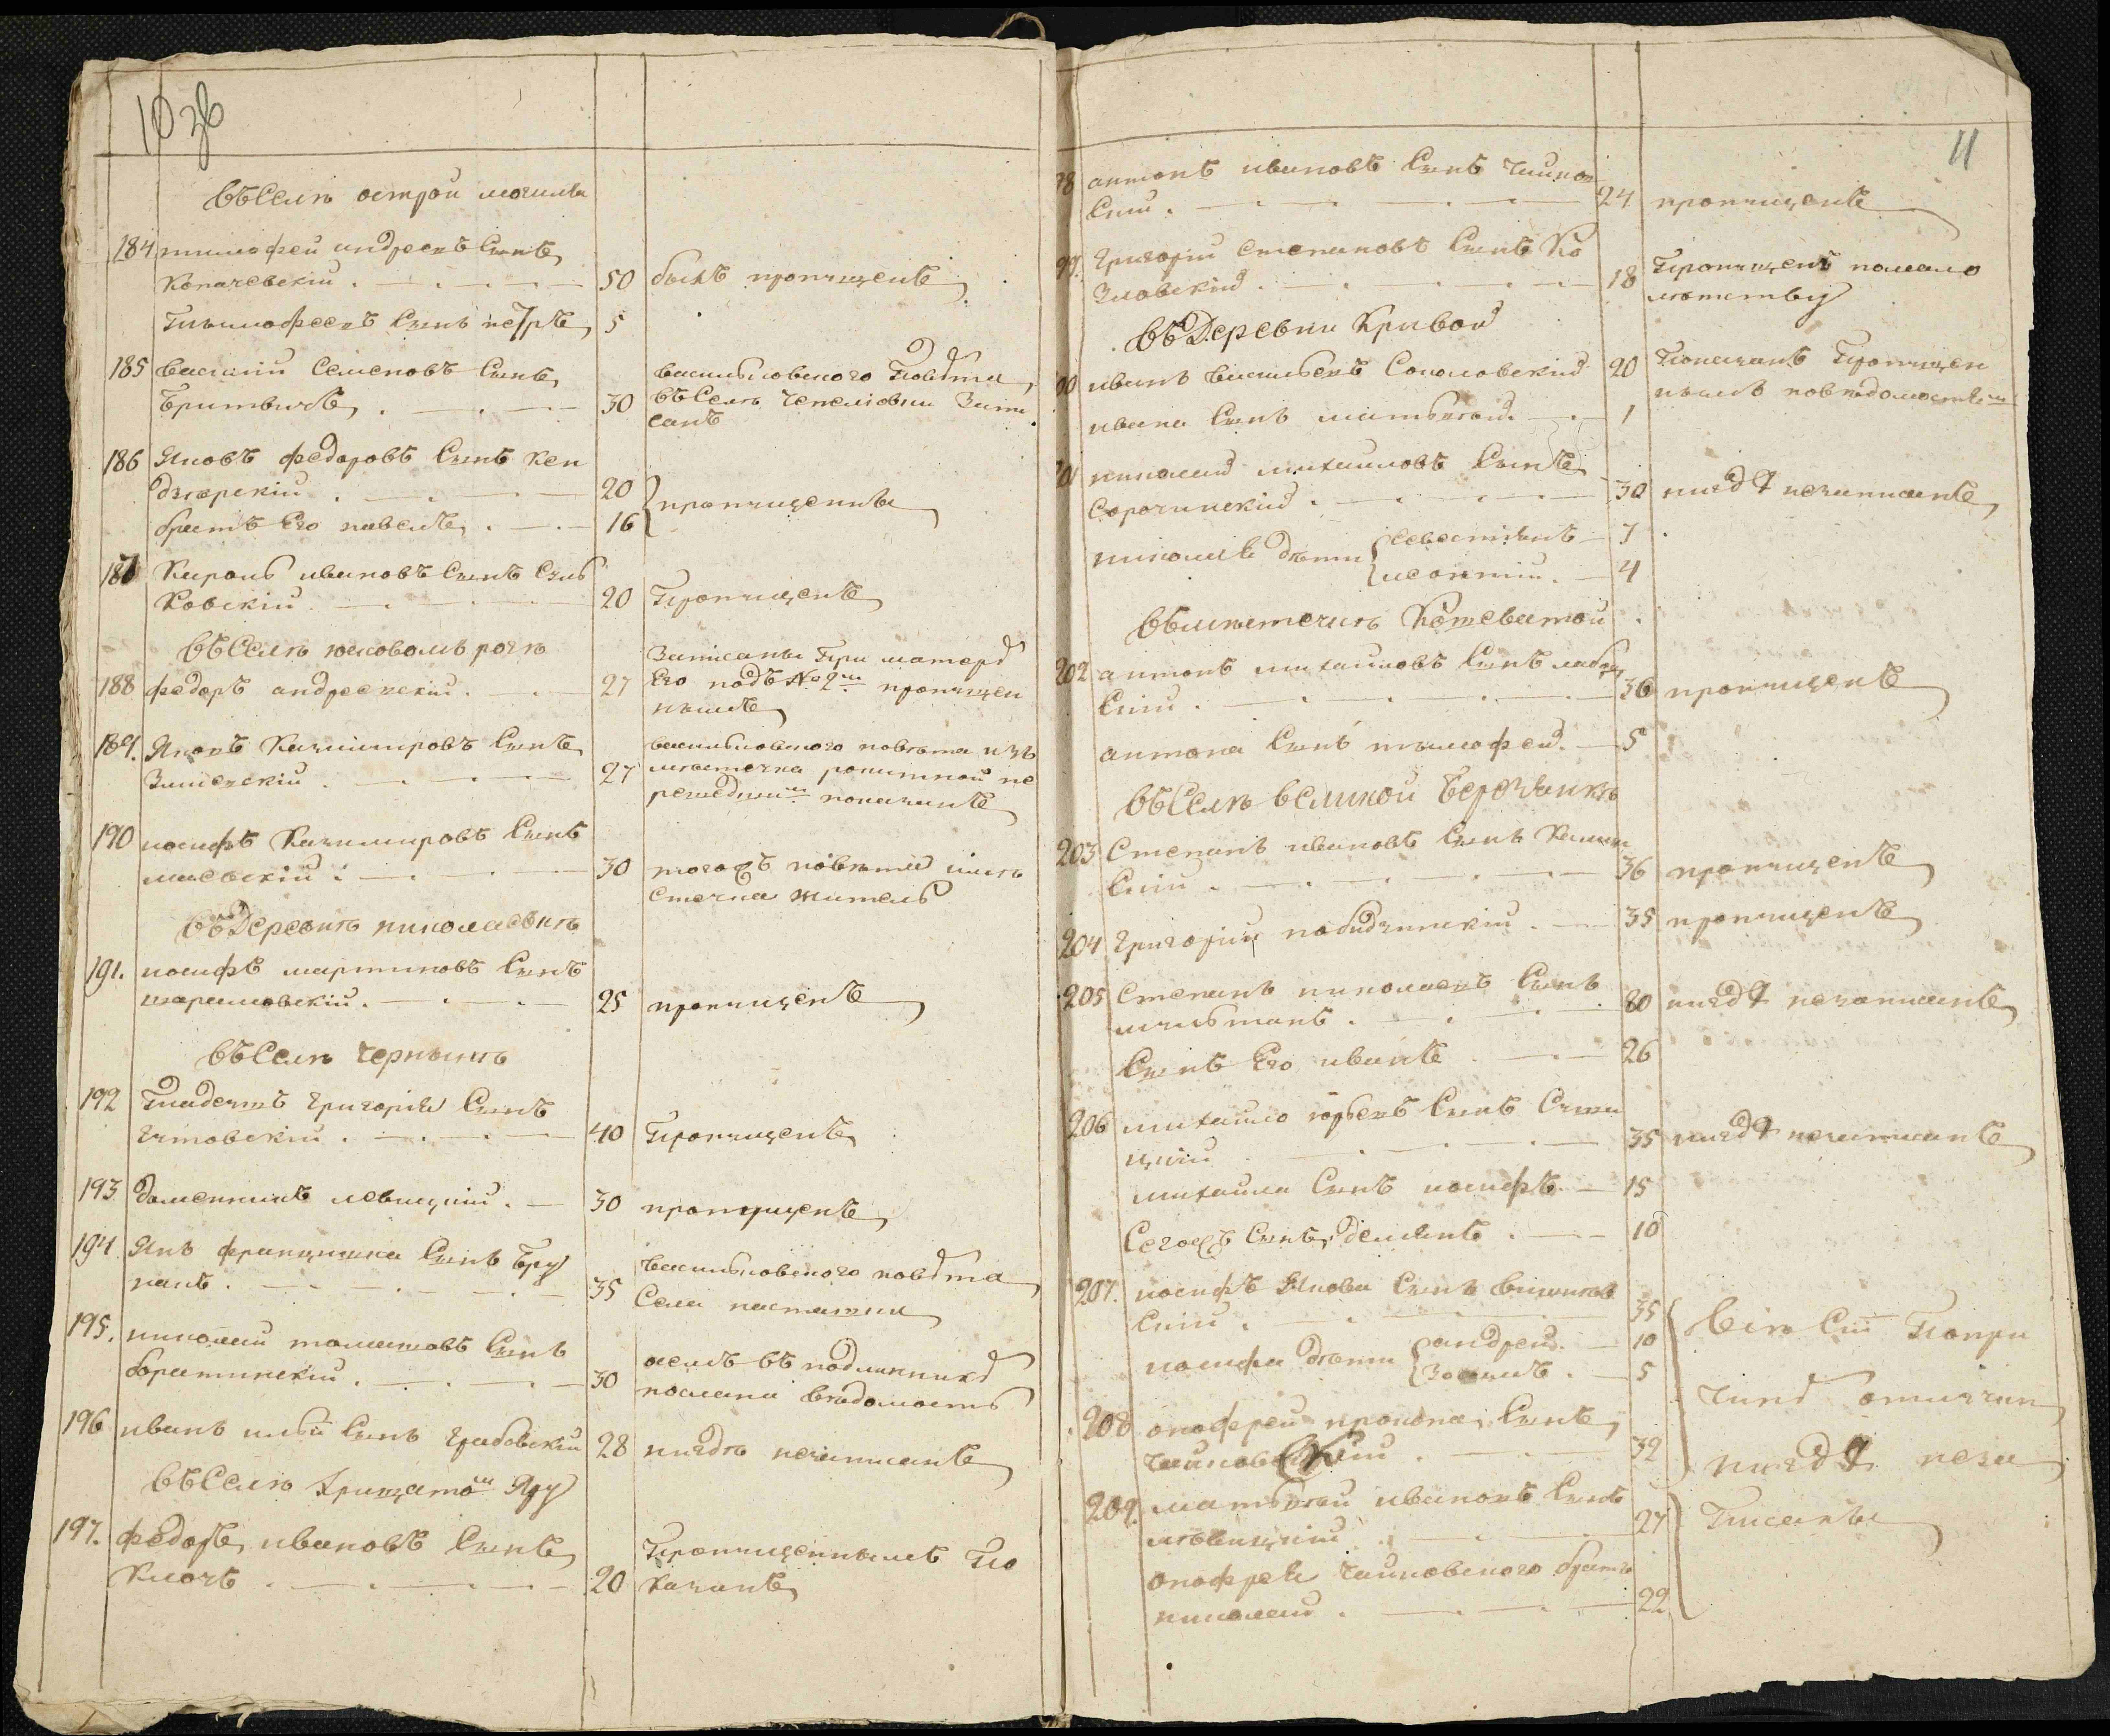 10 зв
въ Селѣ острой могиле
184 тимофей андреевъ Сынъ
Копачевскій 50 былъ пропущенъ
Тимофеевъ Сынъ петръ 5
185 василий Семеновъ Сынъ
Бритвичъ 30
васильковского Повѣта
въ Селѣ Чепелювки Запи
санъ
186 Яковъ федоровъ Сынъ Кен
дзерскій 20
братъ Его павелъ 16
пропущенны
187 Кароль ивановъ Сынъ Суль
Ковскій 20 Пропущенъ
въ Селѣ юсковомъ рогѣ
188 федоръ андреевскій 27
Записаны При матерѣ
Его подъ № 2м пропущен
нымъ
189. Яковъ Казимировъ Сынъ
Змиевскій 27
васильковского повѣта изъ
местечка рокитной пе
решедшим показанъ
190 иосифъ Казимировъ Сынъ
миевскій 30
тогожъ повѣта мѣ
стечка житель
въ Деревнѣ николаевкѣ
191. иосифъ мартиновъ Сынъ
25 пропущенъ
въ Селѣ Чернинѣ
192 Тадеушъ григорія Сынъ
Гутовскій 40 Пропущенъ
193 доменникъ левицкій 30 пропущенъ
194. Янъ францишка Сынъ Бру
нанъ 35
васильковского повѣта
Села насташки
195. николай томашовъ Сынъ
братинскій 30
осемъ въ подлинникѣ
послана вѣдомость
196 иванъ ильи Сынъ грабовскій 28 нигдѣ незаписанъ
въ Селѣ Хрищатом Яру
197. федоръ ивановъ Сынъ
Ключъ 20
Пропущеннымъ По
казанъ
11
98 антонъ ивановъ Сынъ Чайков
Скій 24 пропущенъ
99. григорій степановъ Сынъ Ко
Зловскій 18
Пропущенъ помало
лѣтству
въ Деревни Кривой
00 иванъ васильевъ Соколовскій 20
Показанъ Пропущен
нымъ повѣдомостям
ивана Сынъ матьвѣй 1
01 николай михайловъ Сынъ
Сорочинскій 30 нигдѣ незаписанъ
николая дѣти севостіянъ 7
леонтій 4
въ мѣстечкѣ Кошеватой
202 антонъ михайловъ Сынъ лабун
Скій 36 пропущенъ
антона Сынъ тимофей 5
въ Селѣ великой Березянкѣ
203 Степанъ ивановъ Сынъ Калин
Скій 36 пропущенъ
204 григорій побидзинскій 35 пропущенъ
205 Степанъ николаевъ Сынъ
мильтанъ 80 нигдѣ незаписанъ
Сынъ Его иванъ 26
206 михайло юрьевъ Сынъ
цкій 35 нигдѣ незаписанъ
михайла Сынъ иосифъ 15
Сегожъ Сынъ демянъ 10
207. иосифъ Якова Сынъ вишнев
Скій 35
иосифа дѣти андрей 10
5
208 онофрей прокопа Сынъ
Чайковскій 32
209. матьвѣй ивановъ Сынъ
левицкій 27
онофрея Чайковского братъ
николай 22
всѣ Сіи Попри
чинѣ отлучки
нигдѣ неза
Писаны